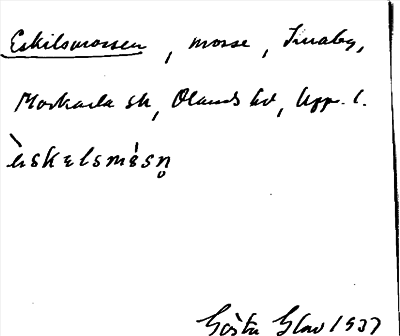 Eskilsmossen, mosse, Smaby,
Morkarla sn, Olands hd, Upp. l.
èskɛlsmósn̥
Gösta Glav 1937